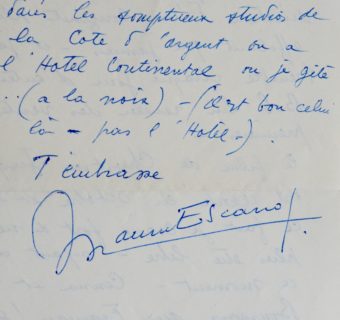 dans les somptueux studios de
la Cote d'argent ou a
l'Hotel Continental ou je gîte
..(a la noix) - (il est bon celui
là - pas l'Hotel -).
T'embrasse